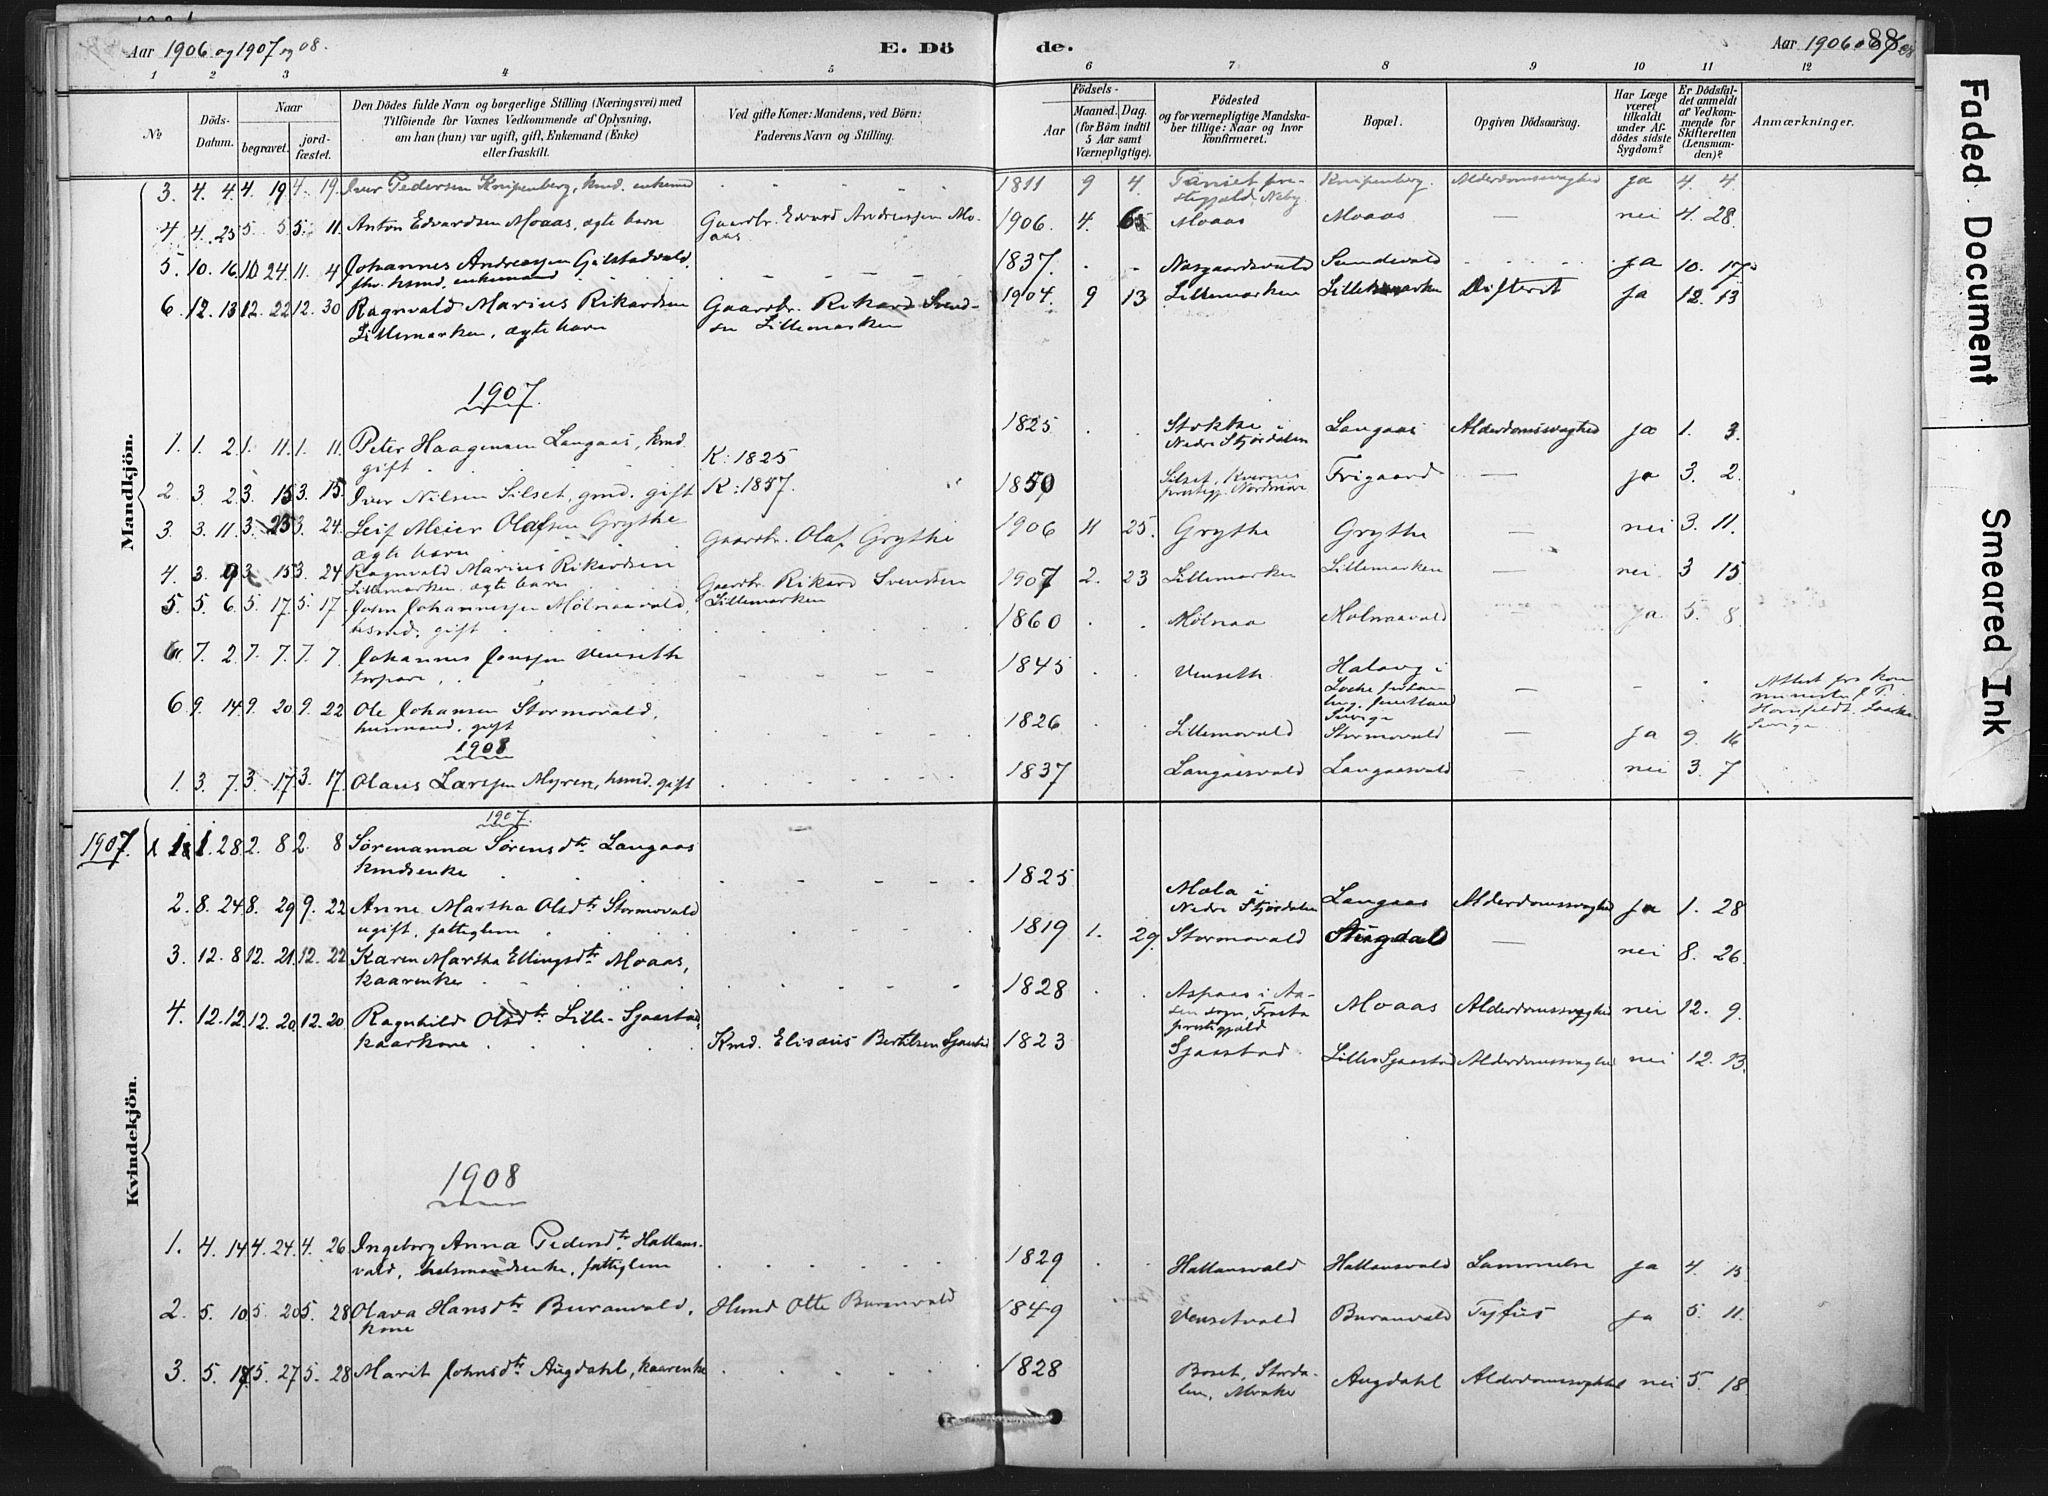 Aar 1906 og 1907 og 08.
E. Dö
de.
Aar 1906 o 07 o 08
88
1 2 3 4 5 6 7 8 9 10 11 12
No
Döds-Datum.
Naar
begravet.
jord-fæstet.
Den Dödes fulde Navn og borgerlige Stilling (Næringsvei) med
Tilföiende for Voxnes Vedkommende af Oplysning,
om han (hun) var ugift, gift, Enkemand (Enke)
eller fraskilt.
Ved gifte Koner: Mandens, ved Börn:
Faderens Navn og Stilling.
Födsels-
Aar
Maaned. Dag.
(for Börn indtil
5 Aar samt
Værnepligtige).
Födested
og for værnepligtige Mandska-
ber tillige: Naar og hvor
konfirmeret.
Bopæl.
Opgiven Dödsaarsag.
Har Læge
været
tilkaldt
under Af-
dödes sidste
Sygdom?
Er Dödsfal-
det anmeldt
af Vedkom-
mende for
Skifteretten
(Lensman-
den)?
Anmærkninger.
Mandkjön.
3. 4. 4. 4. 19 4. 19. Iver Pedersen Knipenberg, kmd. enkemd 1811 9 4. Tønset pre- Knipenberg. Alderdomssvaghed ja 4. 4.
stegjæld, Neby
4 4. 25 5. 5 5. 11. Anton Edvardsen Moaas, ægte barn Gaardbr. Edvard Andreassen Mo- 1906. 4. Moaas Moaas — nei 4. 28.
aas
5. 10. 16 10 24. 11. 4 Johannes Andreassen Gilstadvald. 1837. Nosgaardsvald Sundevald ja 10. 17
fhv. husmd. enkemand
6 12. 13 12. 22 12. 30 Ragnvald Marius Rikardsen Gaardbr. Rikard Svend- 1904. 9 13 Lillemarken Lillemarken Difterit ja 12. 13
Lillemarken, ægte barn sen Lillemarken
1907.
1. 1. 2. 1. 11. 1. 11. Peter Haagensen Langaas, kmd. 1825 Stokke i Langaas Alderdomssvaghed ja 1. 3.
gift K: 1825 Nedre Stjørdalen
2 3 2. 3. 15 3. 15. Iver Nilsen Silset, gmd. gift K: 1857. 1850 Silset, Kvernes Frigaard — ja 3. 2.
prestegj. Nordmøre
3. 3. 11. 3. 23 3. 24. Leif Meier Olafsen Grythe Gaardbr. Olaf Grythe 1906 11 25. Grythe Grythe — nei 3. 11.
ægte barn
4. 3 9 3 15 3. 24 Ragnvald Marius Rikardsen Gaardbr. Rikard Svendsen 1907 2. 23 Lillemarken Lillemarken — nei 3 15.
Lillemarken. ægte barn Lillemarken
5. 5. 6. 5. 17. 5. 17. John Johannessen Mølnaavald, 1860 Mølnaa Mølnaavald — ja. 5. 8.
husmd. gift
7. 2. 7. 7. 7. 7. Johannes Jonssen Venseth 1845 Venseth Halaug i — —
torpare Locke forsam-
ling, Jemtland
Sverige
Attest fra kom
minister J. T.
Hornfeldt. Locke
Sverige
6 9. 14. 9. 20. 9. 22 Ole Johansen Stormovald, 1826 Lillemovald Stormovald — ja 9. 16
husmand, gift
1908
1. 3. 7. 3. 17. 3. 17. Olaus Larssen Myren, hsmd. gift 1837 Langaasvald Langaasvald — nei 3. 7
Kvindekjön.
1907
1907. 1 1. 28 2. 8 2. 8 Sørenanna Sørensdtr Langaas 1825 Mæla i Langaas Alderdomssvaghed ja 1. 28
kmdsenke Nedre Stjørdalen
2. 8. 24 8. 29 9. 22 Anne Martha Olsdtr Stormovald 1819 1. 29. Stormovald Stugdal — nei 8. 26.
ugift, fattiglem
3. 12. 8 12. 21. 12. 22 Karen Martha Ellingsdtr Moaas, 1828 Aspaas i Aa- Moaas Alderdomssvaghed nei 12. 9.
kaarenke sen sogn, Frosta
prestegjæld
4. 12. 12. 12. 20. 12. 20. Ragnhild Olsdtr Lille-Sjaastad, Kmd. Elisæus Bertilsen Sjaastad 1823 Sjaastad Lille Sjaastad Alderdomssvaghed nei 12. 13.
kaarkone
1908
1. 4. 14 4. 24. 4. 26 Ingeborg Anna Pedersdtr. Hallans- 1829 Hallansvald Hallansvald ja 4. 15
vald, husmandsenke, fattiglem
2. 5. 10 5. 20 5. 28 Olava Hansdtr Buranvald, Hsmd Otte Buranvald 1849 Vensetvald Buranvald Tyfus ja 5. 11.
kone
3 5. 17 5. 27 5. 28 Marit Johnsdtr Augdahl, kaarenke 1828 Boset, Storda- Augdahl Alderdomssvaghed nei 5. 18
len, Meraker
Faded Document
Smeared Ink